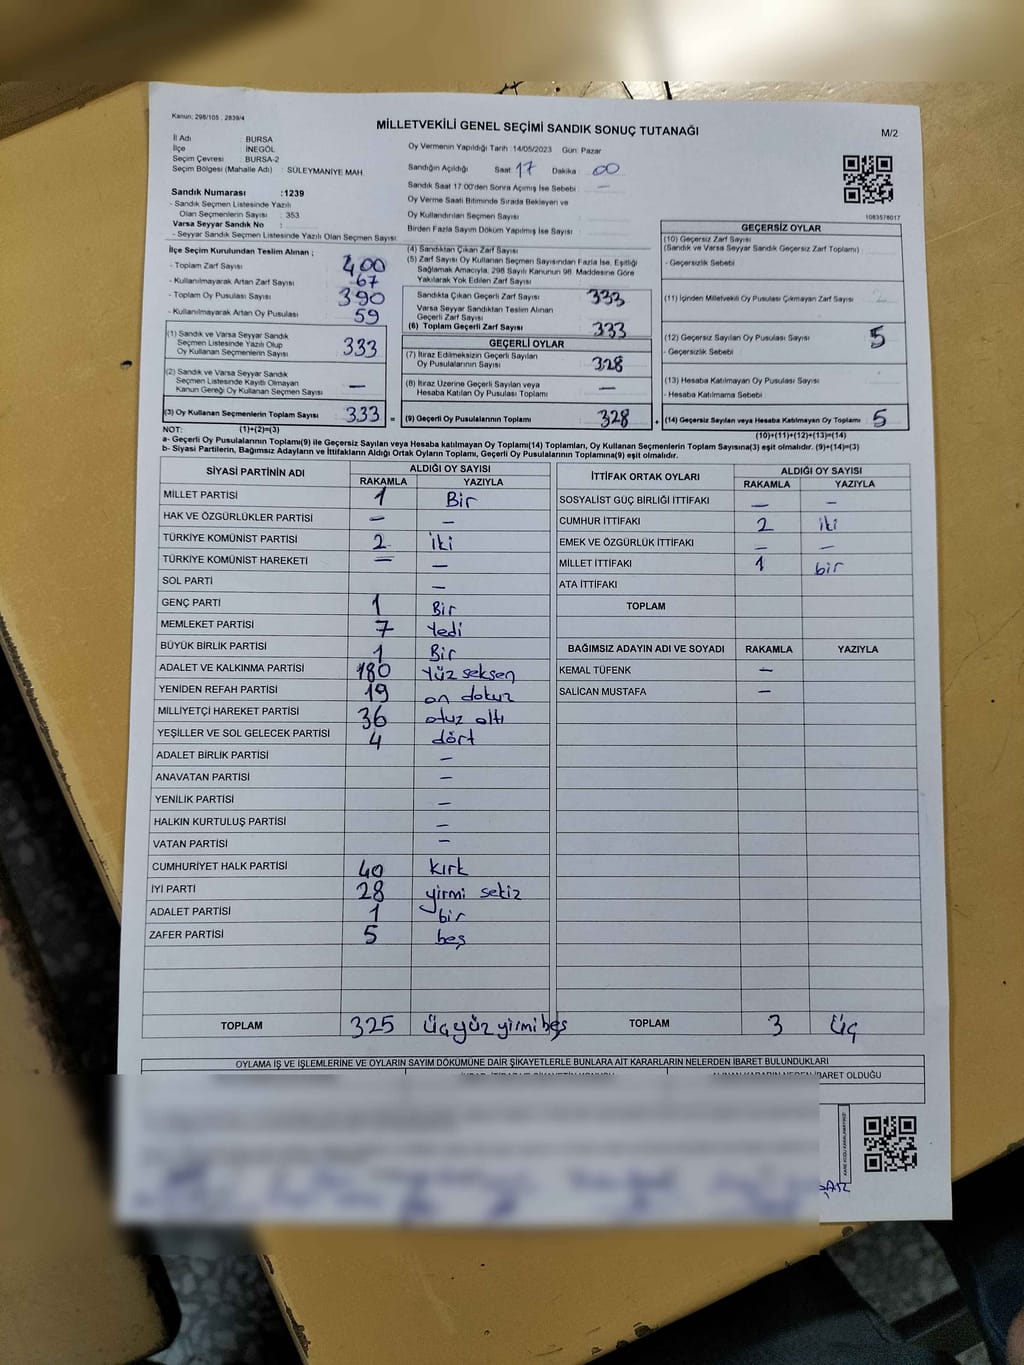 Kanun: 298/105 , 2839/4
MİLLETVEKİLİ GENEL SEÇİMİ SANDIK SONUÇ TUTANAĞI
M/2
İl Adı : BURSA
İlçe : İNEGÖL
Seçim Çevresi : BURSA-2
Seçim Bölgesi (Mahalle Adı) : SÜLEYMANİYE MAH.
Sandık Numarası : 1239
- Sandık Seçmen Listesinde Yazılı
Olan Seçmenlerin Sayısı : 353
Varsa Seyyar Sandık No :
- Seyyar Sandık Seçmen Listesinde Yazılı Olan Seçmen Sayısı
Oy Vermenin Yapıldığı Tarih :14/05/2023 Gün: Pazar
Sandığın Açıldığı Saat 17 Dakika : 00
Sandık Saat 17:00'den Sonra Açılmış İse Sebebi : —
Oy Verme Saati Bitiminde Sırada Bekleyen ve
Oy Kullandırılan Seçmen Sayısı
Birden Fazla Sayım Döküm Yapılmış İse Sayısı
1083576017
İlçe Seçim Kurulundan Teslim Alınan ;
- Toplam Zarf Sayısı 400
- Kullanılmayarak Artan Zarf Sayısı 67
- Toplam Oy Pusulası Sayısı 390
- Kullanılmayarak Artan Oy Pusulası 59
(1) Sandık ve Varsa Seyyar Sandık
Seçmen Listesinde Yazılı Olup
Oy Kullanan Seçmenlerin Sayısı 333
(2) Sandık ve Varsa Seyyar Sandık
Seçmen Listesinde Kayıtlı Olmayan
Kanun Gereği Oy Kullanan Seçmen Sayısı —
(3) Oy Kullanan Seçmenlerin Toplam Sayısı 333 =
(4) Sandıktan Çıkan Zarf Sayısı
(5) Zarf Sayısı Oy Kullanan Seçmen Sayısından Fazla İse, Eşitliği
Sağlamak Amacıyla, 298 Sayılı Kanunun 98. Maddesine Göre
Yakılarak Yok Edilen Zarf Sayısı
Sandıkta Çıkan Geçerli Zarf Sayısı 333
Varsa Seyyar Sandıktan Teslim Alınan
Geçerli Zarf Sayısı
(6) Toplam Geçerli Zarf Sayısı 333
GEÇERLİ OYLAR
(7) İtiraz Edilmeksizin Geçerli Sayılan
Oy Pusulalarının Sayısı 328
(8) İtiraz Üzerine Geçerli Sayılan veya
Hesaba Katılan Oy Pusulası Toplamı —
(9) Geçerli Oy Pusulalarının Toplamı 328 +
GEÇERSİZ OYLAR
(10) Geçersiz Zarf Sayısı
(Sandık ve Varsa Seyyar Sandık Geçersiz Zarf Toplamı)
- Geçersizlik Sebebi
(11) İçinden Milletvekili Oy Pusulası Çıkmayan Zarf Sayısı
(12) Geçersiz Sayılan Oy Pusulası Sayısı 5
- Geçersizlik Sebebi
(13) Hesaba Katılmayan Oy Pusulası Sayısı
- Hesaba Katılmama Sebebi
(14) Geçersiz Sayılan veya Hesaba Katılmayan Oy Toplamı 5
NOT: (1)+(2)=(3)
(10)+(11)+(12)+(13)=(14)
a- Geçerli Oy Pusulalarının Toplamı(9) ile Geçersiz Sayılan veya Hesaba katılmayan Oy Toplamı(14) Toplamları, Oy Kullanan Seçmenlerin Toplam Sayısına(3) eşit olmalıdır. (9)+(14)=(3)
b- Siyasi Partilerin, Bağımsız Adayların ve İttifakların Aldığı Ortak Oyların Toplamı, Geçerli Oy Pusulalarının Toplamına(9) eşit olmalıdır.
SİYASİ PARTİNİN ADI ALDIĞI OY SAYISI
RAKAMLA YAZIYLA
MİLLET PARTİSİ 1 Bir
HAK VE ÖZGÜRLÜKLER PARTİSİ — —
TÜRKİYE KOMÜNİST PARTİSİ 2 iki
TÜRKİYE KOMÜNİST HAREKETİ — —
SOL PARTİ —
GENÇ PARTİ 1 Bir
MEMLEKET PARTİSİ 7 Yedi
BÜYÜK BİRLİK PARTİSİ 1 Bir
ADALET VE KALKINMA PARTİSİ 180 Yüz seksen
YENİDEN REFAH PARTİSİ 19 on dokuz
MİLLİYETÇİ HAREKET PARTİSİ 36 otuz altı
YEŞİLLER VE SOL GELECEK PARTİSİ 4 dört
ADALET BİRLİK PARTİSİ —
ANAVATAN PARTİSİ —
YENİLİK PARTİSİ —
HALKIN KURTULUŞ PARTİSİ —
VATAN PARTİSİ —
CUMHURİYET HALK PARTİSİ 40 kırk
İYİ PARTİ 28 yirmi sekiz
ADALET PARTİSİ 1 bir
ZAFER PARTİSİ 5 beş
TOPLAM 325 üçyüz yirmibeş
İTTİFAK ORTAK OYLARI ALDIĞI OY SAYISI
RAKAMLA YAZIYLA
SOSYALİST GÜÇ BİRLİĞİ İTTİFAKI — —
CUMHUR İTTİFAKI 2 iki
EMEK VE ÖZGÜRLÜK İTTİFAKI — —
MİLLET İTTİFAKI 1 bir
ATA İTTİFAKI
TOPLAM
BAĞIMSIZ ADAYIN ADI VE SOYADI RAKAMLA YAZIYLA
KEMAL TÜFENK —
SALİCAN MUSTAFA —
TOPLAM 3 üç
OYLAMA İŞ VE İŞLEMLERİNE VE OYLARIN SAYIM DÖKÜMÜNE DAİR ŞİKAYETLERLE BUNLARA AİT KARARLARIN NELERDEN İBARET BULUNDUKLARI